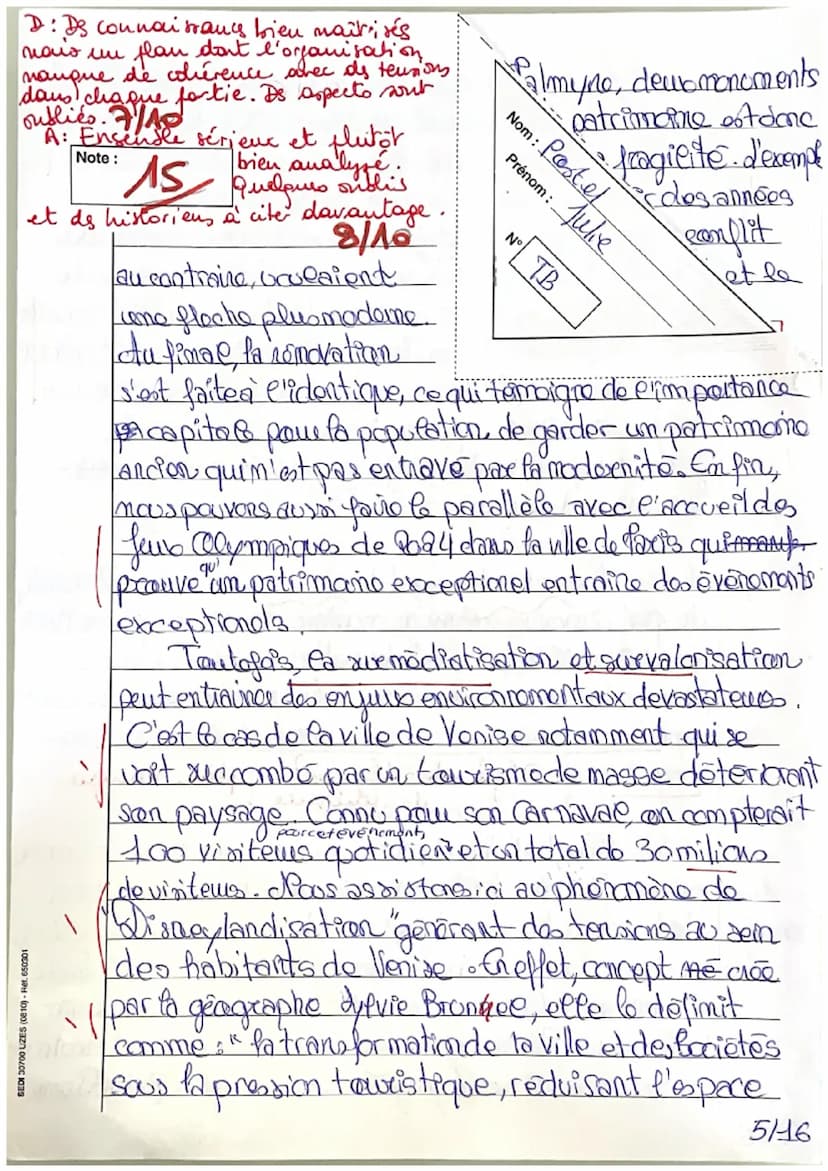 D : Ds connaissances bien maîtrisés
mais un plan dont l'organisation
manque de cohérence avec ds tensions
dans chaque partie. Ds aspects sont
oubliés. 7/10
A : Ensemble sérieux et plutôt
bien analysé.
Quelques oublis
et ds historiens à citer davantage.
8/10
Note :
15
Nom : Pastel
Prénom : Julie
N°
TB
Palmyre, deux monuments
patrimoine est donc
fragilité. d'exempl
des années
conflit
et la
au contraire, voulaient
une flèche plus moderne.
Au final, la rénovation
s'est faite à l'identique, ce qui témoigne de l'importance
capitale pour la population, de garder un patrimoine
ancien qui n'est pas entravé par la modernité. Enfin,
nous pouvons aussi faire le parallèle avec l'accueil des
Jeux Olympiques de 2024 dans la ville de Paris qui
prouve qu'un patrimoine exceptionel entraîne des évènements
exceptionels.
Toutefois, la surmédiatisation et survalorisation
peut entrainer des enjeux environnementaux dévastateurs.
C'est le cas de la ville de Venise notamment qui se
voit succombé par un tourisme de masse détériorant
son paysage. Connu pour son Carnaval, on compterait
par cet évènement,
100 visiteurs quotidien et un total de 30 milions
de visiteurs. Nous assistons ici au phénomène de
"Disneylandisation" générant des tensions au sein
des habitants de Venise. En effet, concept créé
par la géographe Sylvie Brunel, elle le définit
comme : "la transformation de la ville et des Sociétés
sous la pression touristique, réduisant l'espace
5/16
SEDI 30700 UZES (0810) - Réf. 650301